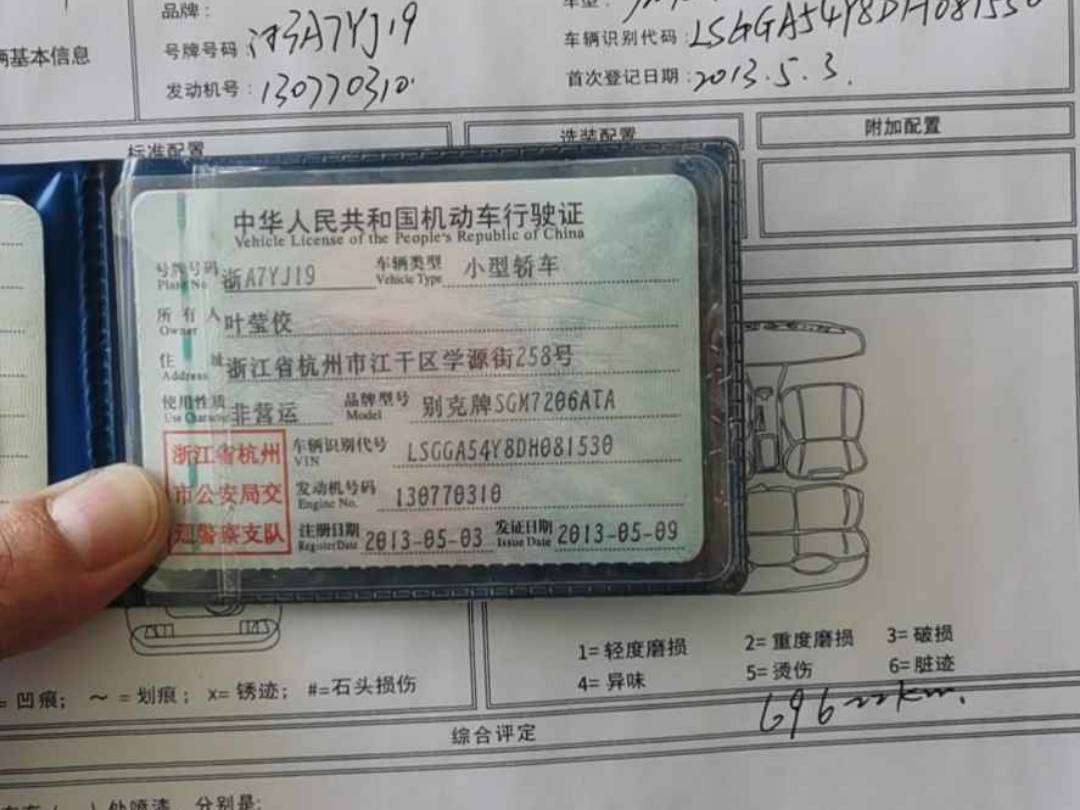 品牌：
车型：
辆基本信息
号牌号码：浙A7YJ19
车辆识别代码：LSGGA54Y8DH081530
发动机号：130770310
首次登记日期：2013.5.3.
标准配置
选装配置
附加配置
中华人民共和国机动车行驶证
Vehicle License of the People's Republic of China
号牌号码 浙A7YJ19 车辆类型 小型轿车
Plate No. Vehicle Type
所有人 叶莹佼
Owner
住址 浙江省杭州市江干区学源街258号
Address
使用性质 非营运 品牌型号 别克牌SGM7206ATA
Use Character Model
浙江省杭州
市公安局交
通警察支队
车辆识别代号 LSGGA54Y8DH081530
VIN
发动机号码 130770310
Engine No.
注册日期 2013-05-03 发证日期 2013-05-09
Register Date Issue Date
1=轻度磨损 2=重度磨损 3=破损
4=异味 5=烫伤 6=脏迹
=凹痕； ～=划痕； x=锈迹； #=石头损伤
综合评定
处喷漆，分别是: